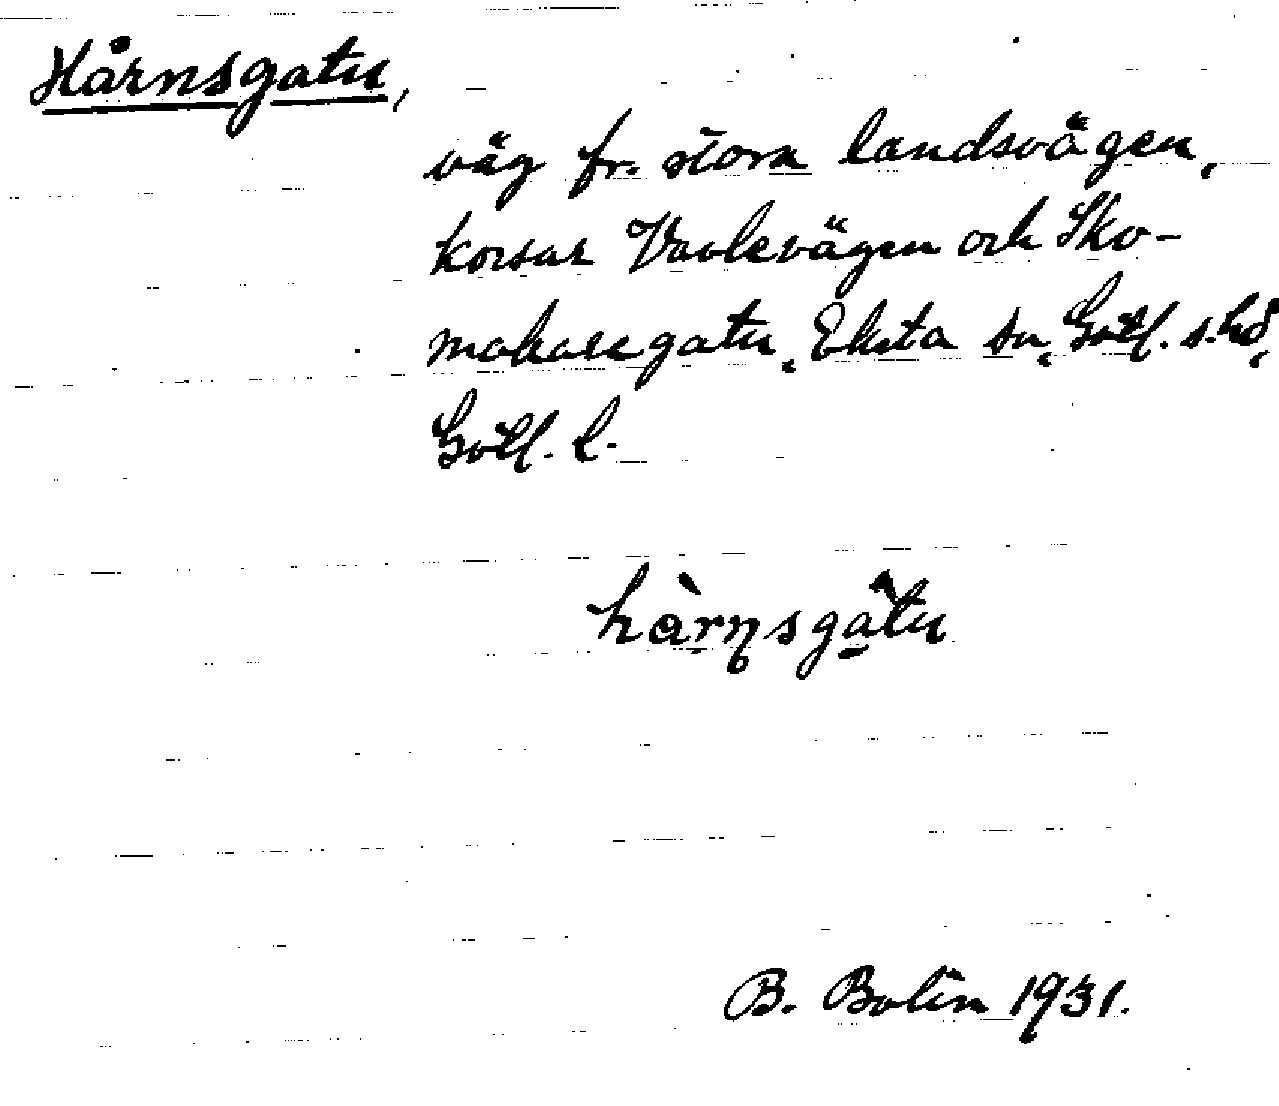 Hårnsgatu,
väg fr. stora landsvägen,
korsar Vavlevägen och Sko-
makaregatu, Eksta sn, Gotl. s. hd,
Gotl. l.
hàrnsgàtu
B. Bolin 1931.